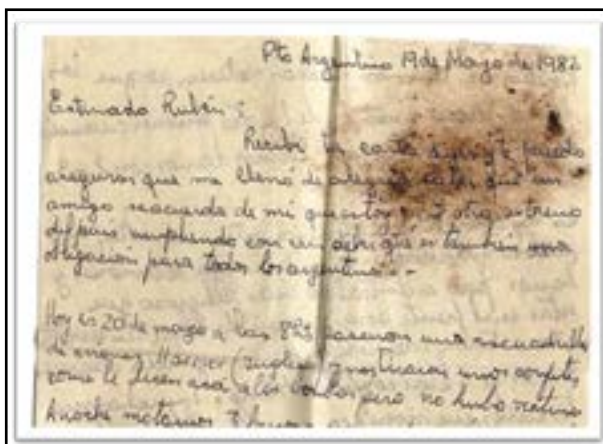 Pto Argentino 19 de Mayo de 1982
Estimado Rubén:
Recibí tu carta ayer y te puedo
asegurar que me llenó de alegría saber que un
amigo se acuerda de mi que estoy en el otro extremo
del país cumpliendo con un deber que es también una
obligación para todos los argentinos.-
Hoy es 20 de mayo a las 8 pasaron una escuadrilla
de Harrier (ingleses) y nos tiraron unos confites
como le dicen acá a las bombas pero no hubo
Anoche matamos